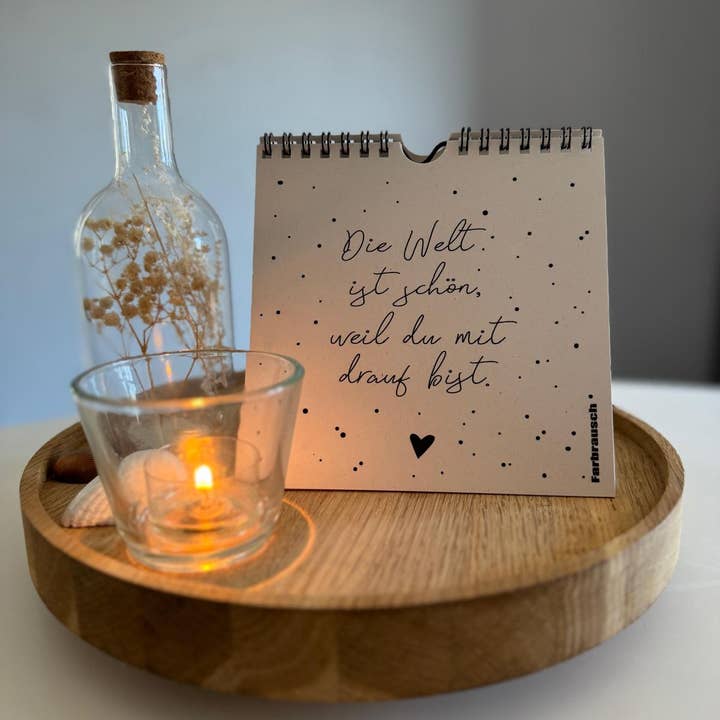 Die Welt
ist schön,
weil du mit
drauf bist.
Farbrausch